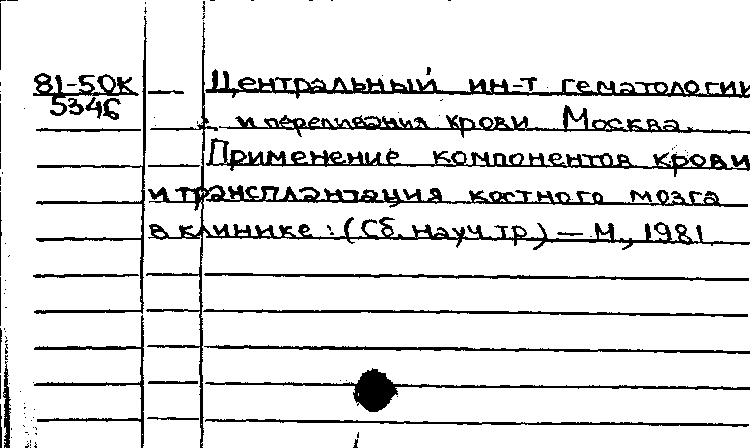 81-50к Центральный ин-т гематологии
5346
и переливания крови. Москва.
Применение компонентов крови
и трансплантация костного мозга
в клинике : (Сб. науч. тр.) — М., 1981